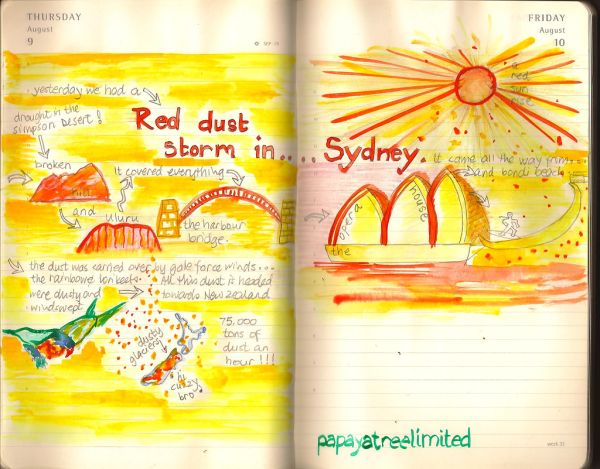 THURSDAY
August
9
yesterday we had a
drought in the
Simpson Desert!
Red dust
storm in....
broken
hill
and
uluru
it covered everything
the harbour
bridge.
the dust was carried over by gale force winds...
the rainbow lorikeets.
were dusty and
windswept
All this dust is headed
towards New Zealand
75,000
tons of
dust an
hour!!!
dusty
glaciers!
hi
cuzzy
bro
FRIDAY
August
10
a
red
sun
rise
Sydney.
it came all the way from...
and bondi beach
the
opera
house
papayatreelimited
week 32